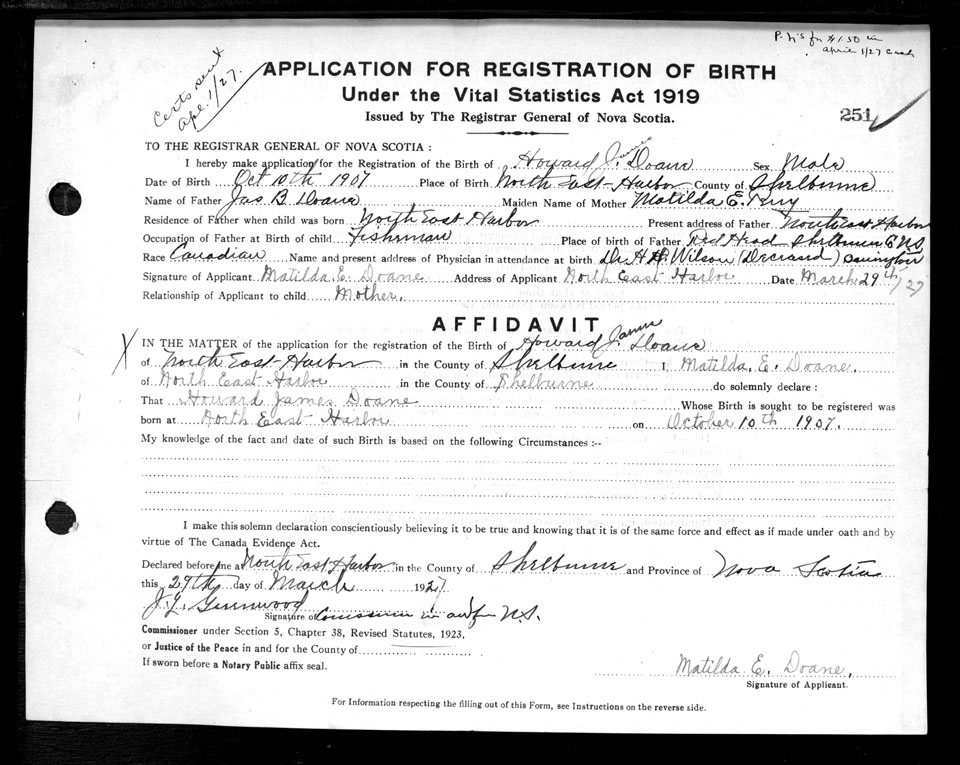 P. N's for $1.50 in
April 1/27 Cash
Certs sent
Apl. 1/27.
APPLICATION FOR REGISTRATION OF BIRTH
Under the Vital Statistics Act 1919
Issued by The Registrar General of Nova Scotia.
251
TO THE REGISTRAR GENERAL OF NOVA SCOTIA :
I hereby make application for the Registration of the Birth of Howard James Doane Sex Male
Date of Birth Oct 10th 1907 Place of Birth North East Harbor County of Shelburne
Name of Father Jas B Doane Maiden Name of Mother Matilda E. Perry
Residence of Father when child was born North East Harbor Present address of Father North East Harbor
Occupation of Father at Birth of child Fisherman Place of birth of Father Red Head Shelburne Co N.S.
Race Canadian Name and present address of Physician in attendance at birth Dr. H. Wilson (Deceased) Barrington
Signature of Applicant Matilda E. Doane Address of Applicant North East Harbor Date March 29th/27
Relationship of Applicant to child Mother.
AFFIDAVIT
IN THE MATTER of the application for the registration of the Birth of Howard James Doane
of North East Harbor in the County of Shelburne I, Matilda. E. Doane.
of North East Harbor in the County of Shelburne do solemnly declare :
That Howard James Doane Whose Birth is sought to be registered was
born at North East Harbor on October 10th 1907.
My knowledge of the fact and date of such Birth is based on the following Circumstances :--
I make this solemn declaration conscientiously believing it to be true and knowing that it is of the same force and effect as if made under oath and by
virtue of The Canada Evidence Act.
Declared before me at North East Harbor in the County of Shelburne and Province of Nova Scotia
this 29th day of March 1927
Greenwood
Signature of Commissioner in and for N.S.
Commissioner under Section 5, Chapter 38, Revised Statutes, 1923,
or Justice of the Peace in and for the County of
If sworn before a Notary Public affix seal.
Matilda E. Doane.
Signature of Applicant.
For Information respecting the filling out of this Form, see Instructions on the reverse side.